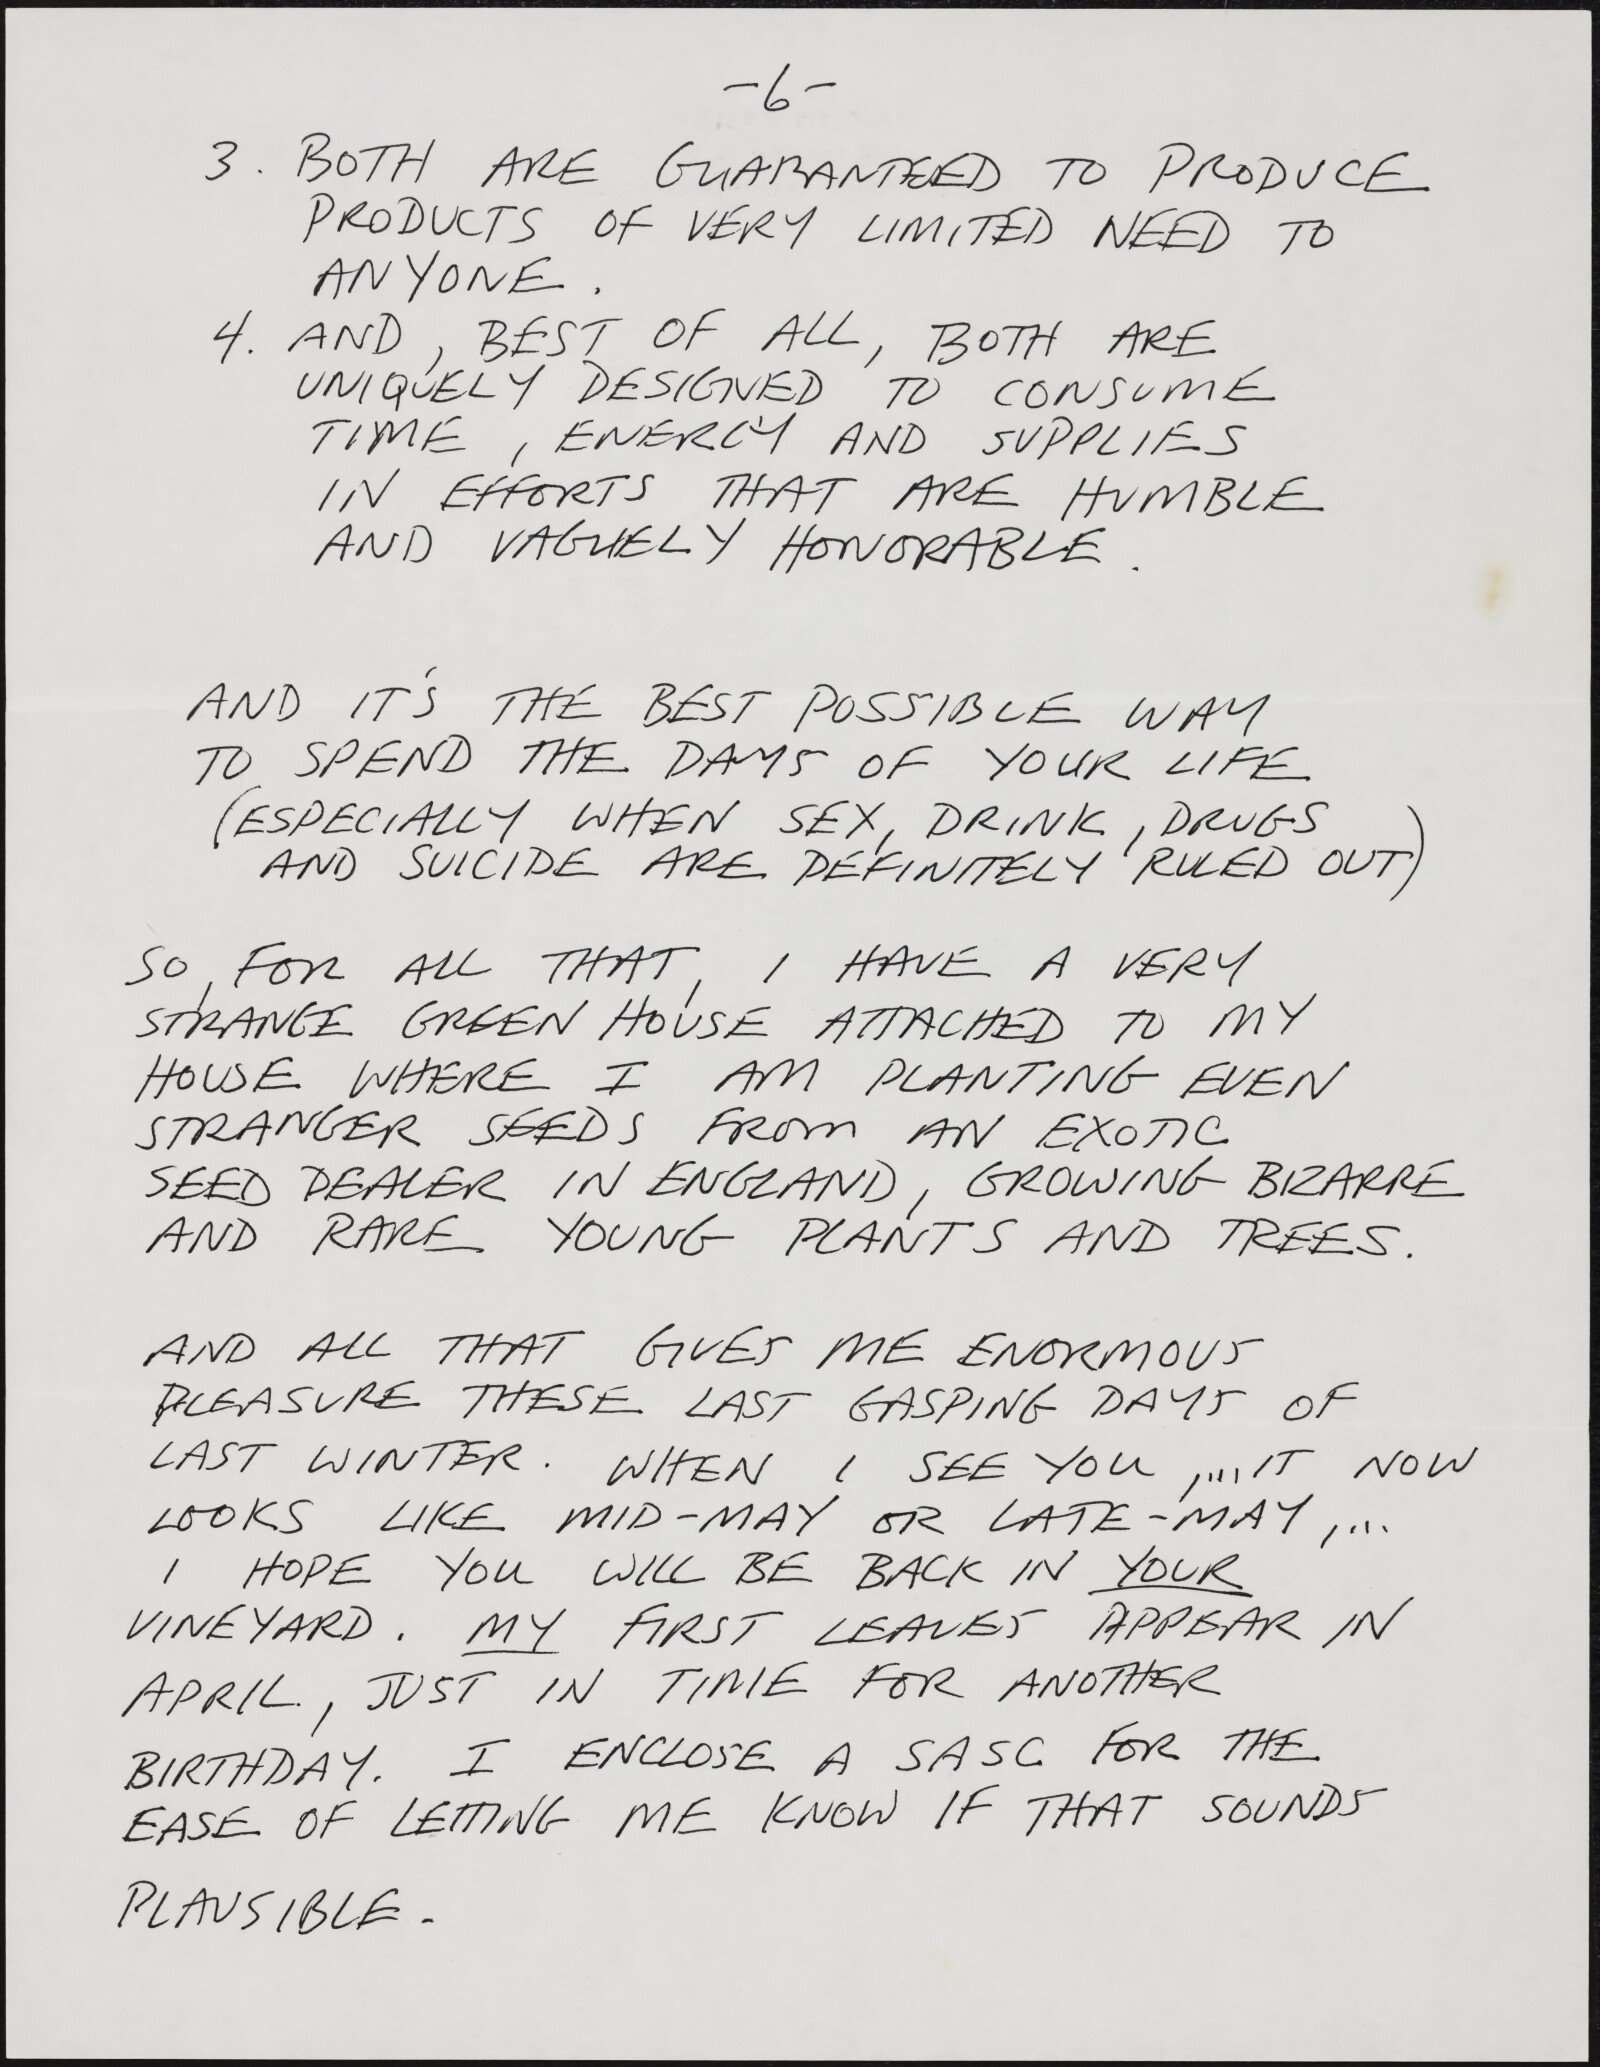 -6-
3. BOTH ARE GUARANTEED TO PRODUCE
PRODUCTS OF VERY LIMITED NEED TO
ANYONE.
4. AND, BEST OF ALL, BOTH ARE
UNIQUELY DESIGNED TO CONSUME
TIME, ENERGY AND SUPPLIES
IN EFFORTS THAT ARE HUMBLE
AND VAGUELY HONORABLE.
AND IT'S THE BEST POSSIBLE WAY
TO SPEND THE DAYS OF YOUR LIFE
(ESPECIALLY WHEN SEX, DRINK, DRUGS
AND SUICIDE ARE DEFINITELY RULED OUT)
SO, FOR ALL THAT, I HAVE A VERY
STRANGE GREEN HOUSE ATTACHED TO MY
HOUSE WHERE I AM PLANTING EVEN
STRANGER SEEDS FROM AN EXOTIC
SEED DEALER IN ENGLAND, GROWING BIZARRE
AND RARE YOUNG PLANTS AND TREES.
AND ALL THAT GIVES ME ENORMOUS
PLEASURE THESE LAST GASPING DAYS OF
LAST WINTER. WHEN I SEE YOU,....IT NOW
LOOKS LIKE MID-MAY OR LATE-MAY,...
I HOPE YOU WILL BE BACK IN YOUR
VINEYARD. MY FIRST LEAVES APPEAR IN
APRIL, JUST IN TIME FOR ANOTHER
BIRTHDAY. I ENCLOSE A SASC FOR THE
EASE OF LETTING ME KNOW IF THAT SOUNDS
PLAUSIBLE.